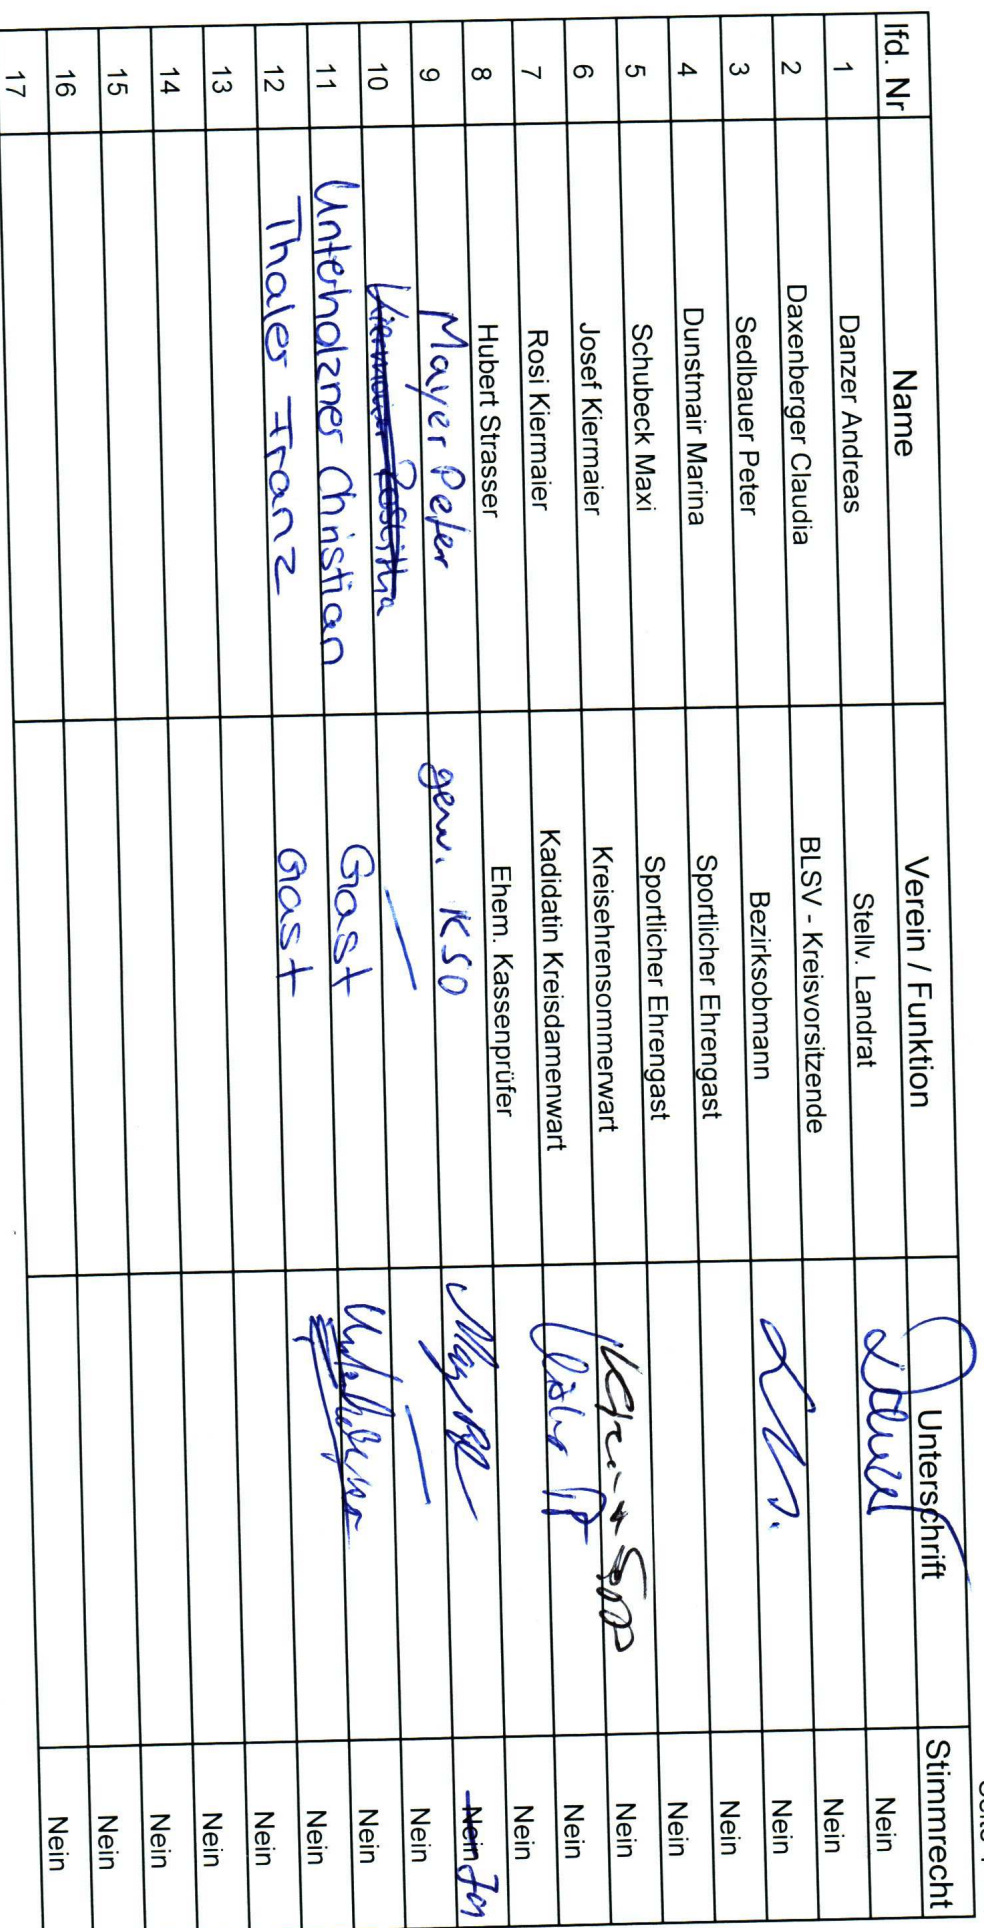 lfd. Nr Name Verein / Funktion Unterschrift Stimmrecht
1 Danzer Andreas Stellv. Landrat Nein
2 Daxenberger Claudia BLSV - Kreisvorsitzende Nein
3 Sedlbauer Peter Bezirksobmann Nein
4 Dunstmair Marina Sportlicher Ehrengast Nein
5 Schubeck Maxi Sportlicher Ehrengast Nein
6 Josef Kiermaier Kreisehrensommerwart Nein
7 Rosi Kiermaier Kadidatin Kreisdamenwart Nein
8 Hubert Strasser Ehem. Kassenprüfer Nein
9 Mayer Peter gew. KSO Nein Ja
10 Nein
11 Unterholzner Christian Gast Nein
12 Thaler Franz Gast Nein
13 Nein
14 Nein
15 Nein
16 Nein
17 Nein